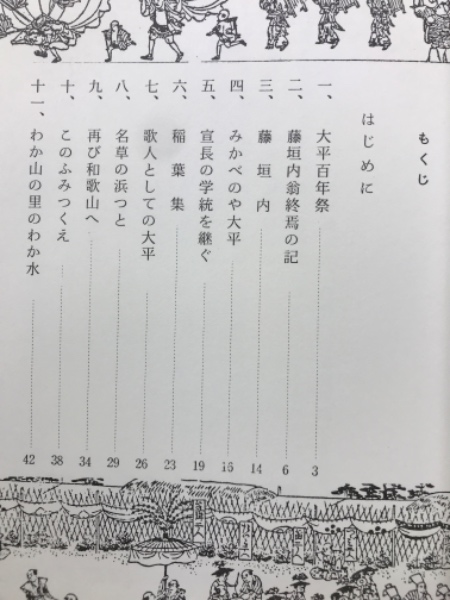 もくじ
はじめに
一、大平百年祭 3
二、藤垣内翁終焉の記 6
三、藤垣内 14
四、みかべのや大平 15
五、宣長の学統を継ぐ 19
六、稲葉集 23
七、歌人としての大平 26
八、名草の浜つと 29
九、再び和歌山へ 34
十、このふみつくえ 38
十一、わか山の里のわか水 42